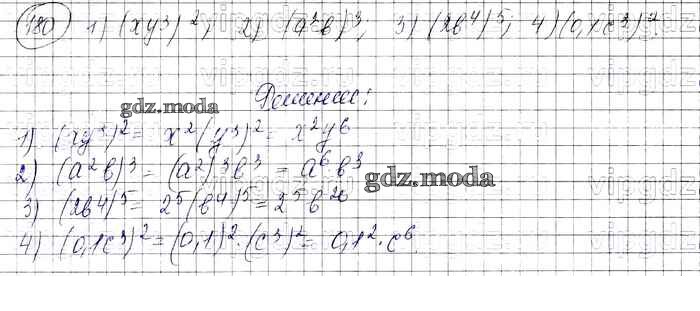 180 1) (xy³)²; 2) (a²b)³; 3) (2b⁴)⁵; 4) (0,1c³)²
Решение:
gdz.moda
1) (xy³)² = x²(y³)² = x²y⁶
2) (a²b)³ = (a²)³b³ = a⁶b³
gdz.moda
3) (2b⁴)⁵ = 2⁵(b⁴)⁵ = 2⁵b²⁰
4) (0,1c³)² = (0,1)²·(c³)² = 0,1²·c⁶